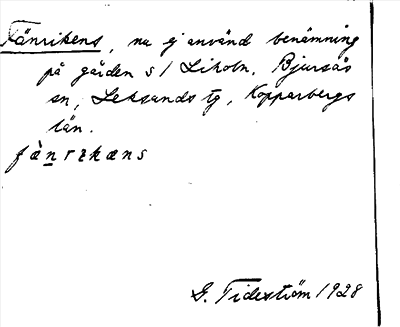 Fänrikens, nu ej använd benämning
på gården s1 Liholn. Bjursås
sn, Leksands tg, Kopparbergs
län.
fànrɩkæns
G. Tideström 1928